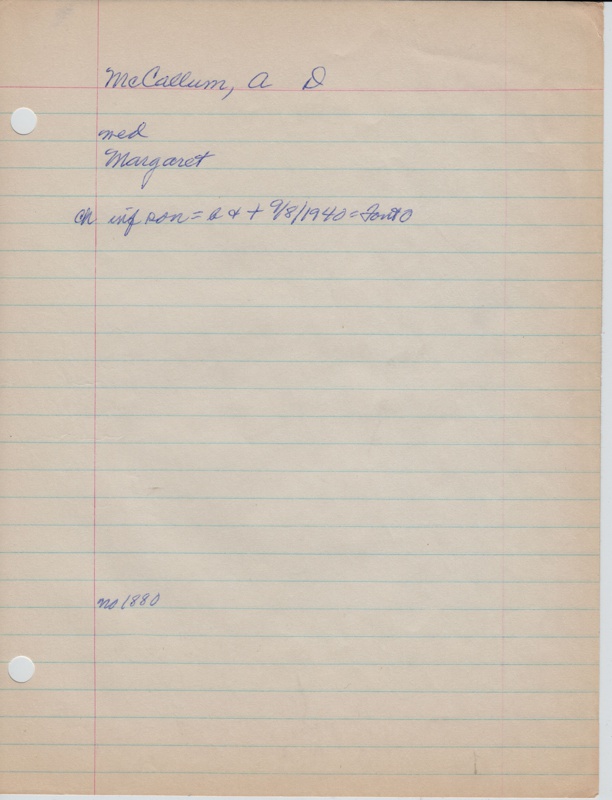 McCallum, A D
med
Margaret
ch inf son = a & + 9/8/1940 =
no 1880